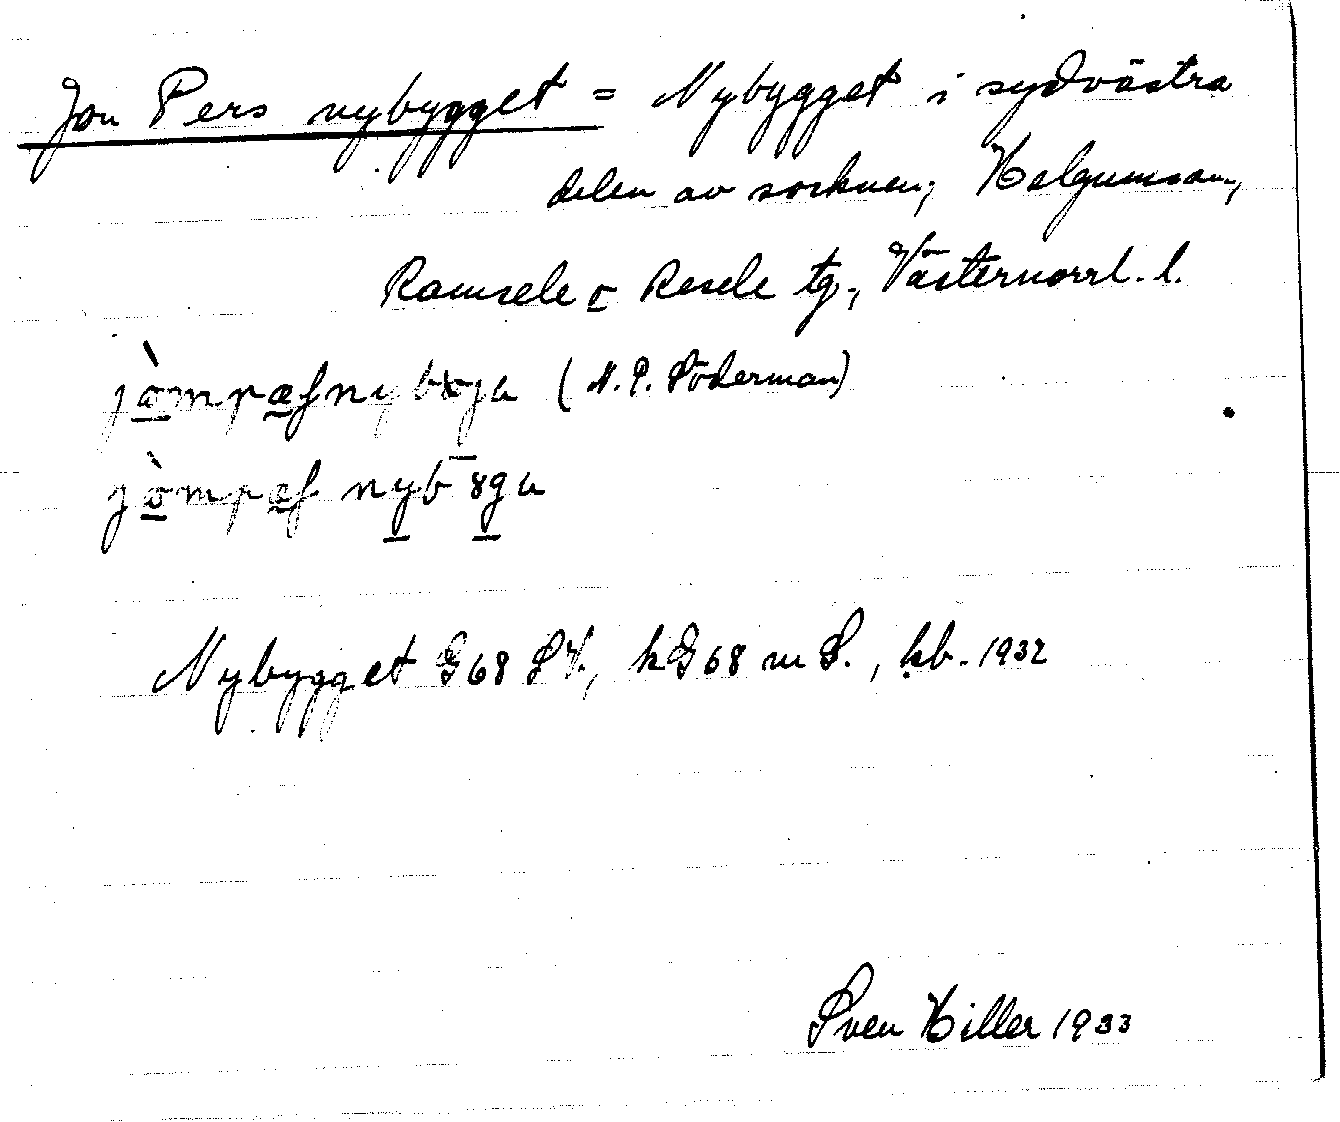 Jon Pers nybygget = Nybygget i sydvästra
delen av socknen, Helgumsån,
Ramsele o Resele tg., Västernorrl. l.
(N. P. Söderman)
Nybygget G68 SV, hG68 m S., kb. 1932
Sven Hiller 1933